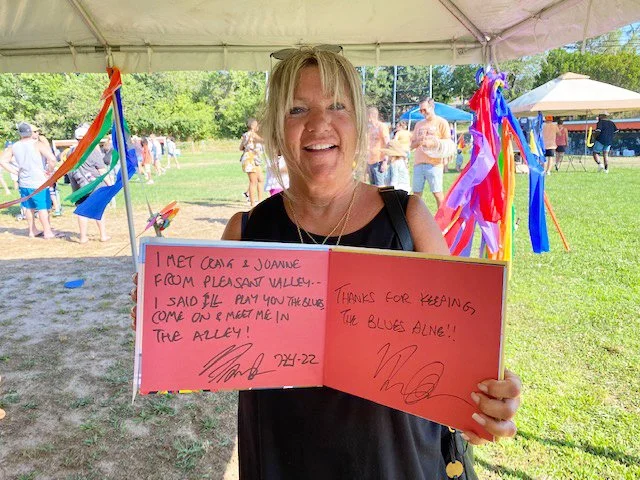 I MET CRAIG & JOANNE
FROM PLEASANT VALLEY..
I SAID I'LL PLAY YOU THE BLUES
COME ON & MEET ME IN
THE ALLEY!
THANKS FOR KEEPING
THE BLUES ALIVE!!